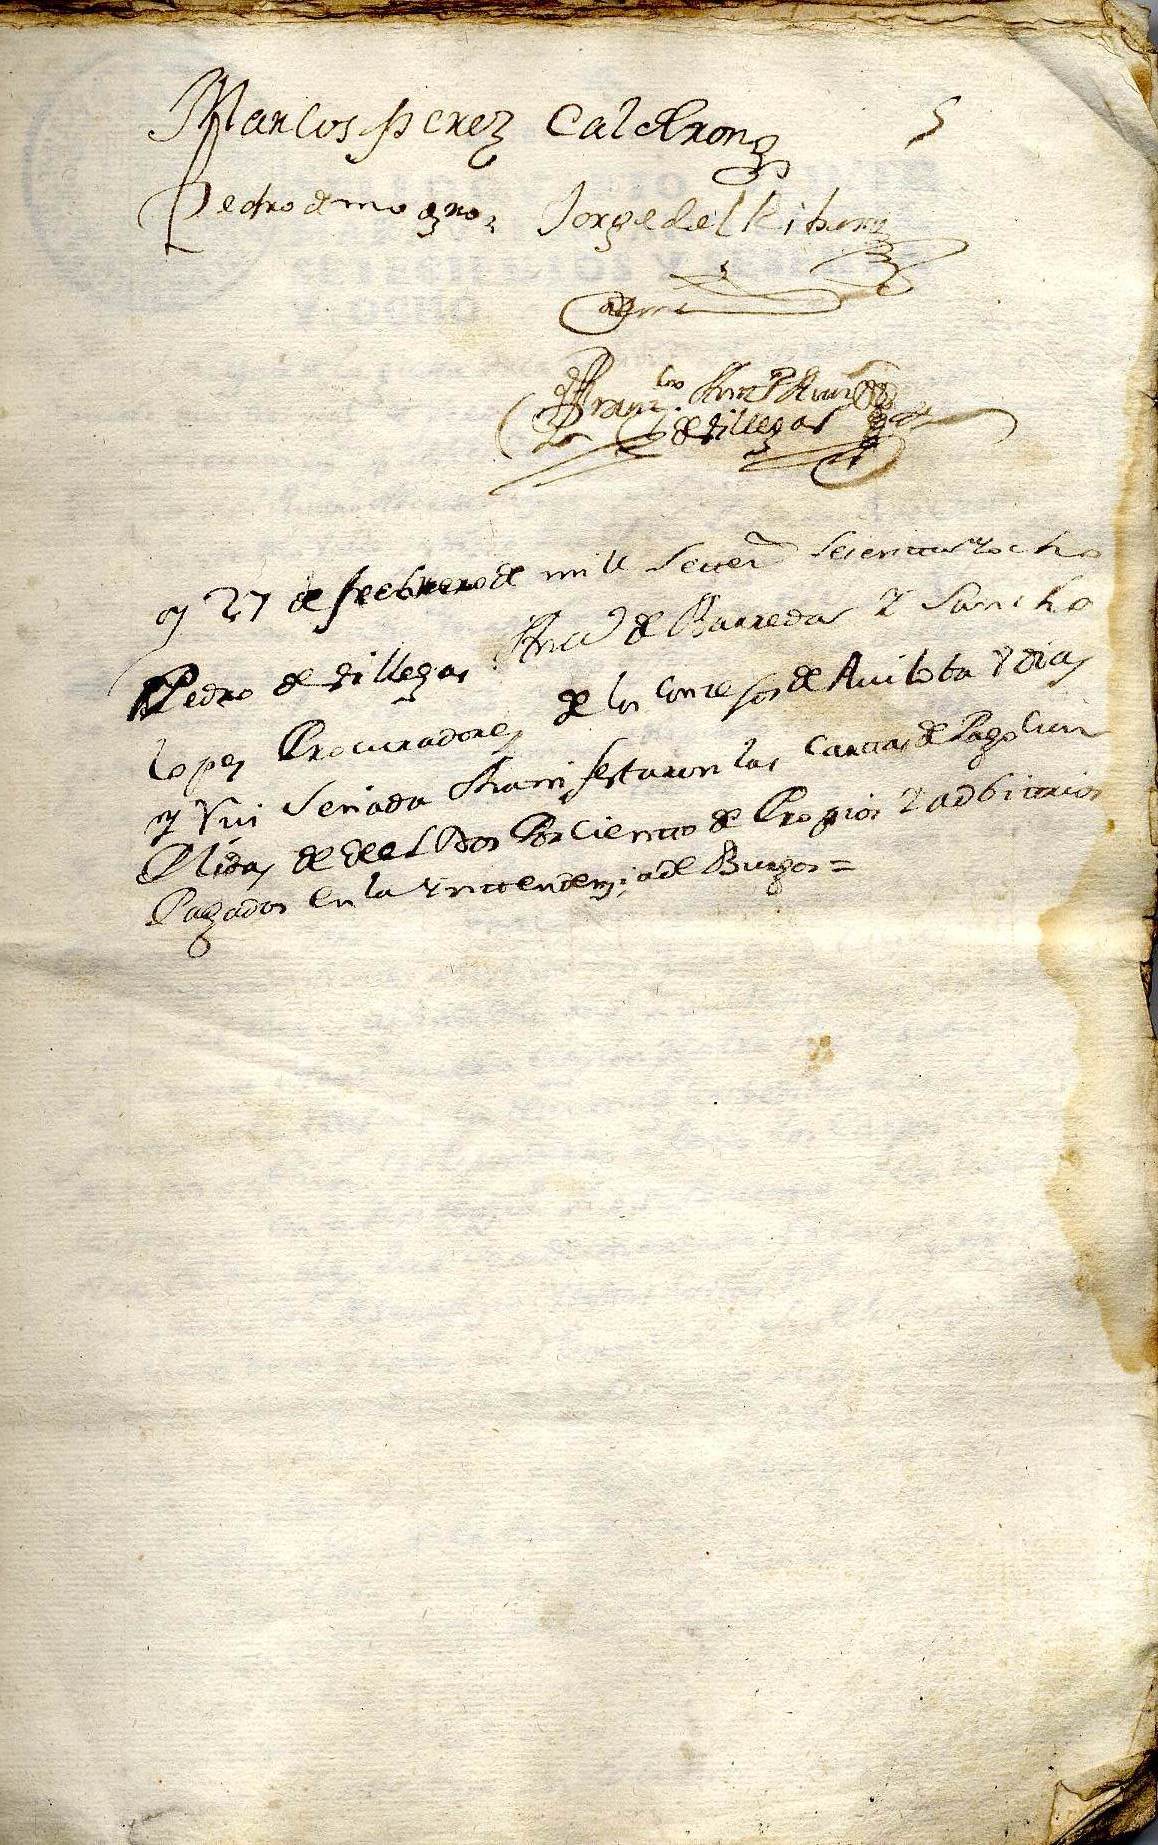 Marcos perez Calderon
Pedro de mogro Jorge del Riber
Ante mi
Fran.co
de Villegas
oy 27 de febrero de mill setez.s sesenta y ocho
Pedro de Villegas de Barreda y Sancho
lopez Procuradores de los Concejos de Auilota y dias
y Vui senada Manifestaron las Cartas de Pago Cum
Plidas de de el dos Por Ciento de Propios y adbitrios
Pagados en la yntendenzia de Burgos =